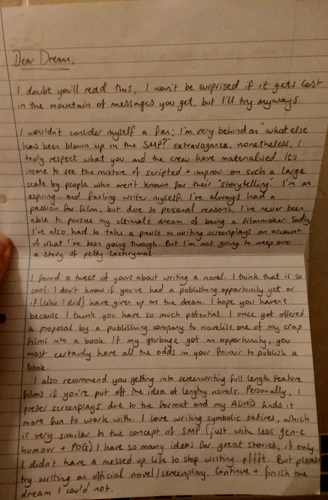 Dear Dream,
I doubt you'll read this, I won't be surprised if it gets lost
in the mountain of messages you get, but I'll try anyways
I wouldn't consider myself a fan; I'm very behind on "what else
has been blown up in the SMP?" extravaganza, nonetheless, I
truly respect what you and the crew have materialised. It's
insane to see the mixture of scripted + improv on such a large
scale by people who aren't known for their "storytelling". I'm an
aspiring and failing writer myself. I've always had a
passion for film, but due to personal reasons I've never been
able to pursue my ultimate dream of being a filmmaker. Sadly
I've also had to take a pause on writing screenplays on account
of what I've been going through. But I'm not going to weep one
a story of petty lachrymal.
I found a tweet of yours about writing a novel. I think that is so
cool. I don't know if you've had a publishing opportunity yet or
if (like I did) have given up on the dream. I hope you haven't
because I think you have so much potential. I once got offered
a proposal by a publishing company to novelise one of my crap
films into a book. If my garbage got an opportunity, you
most certainly have all the odds in your favour to publish a
book.
I also recommend you getting into screenwriting full length feature
films if you're put off the idea of lengthy novels. Personally, I
prefer screenplays due to the format and my ADHD finds it
more fun to work with. I love writing symbolic satires, which
is very similar to the concept of SMP (just with less gen-z
humour + POG) I have so many ideas for great stories, if only
I didn't have a messed up life to stop writing pffft. But please
try writing an official novel/screenplay. Continue + finish the
dream I could not.